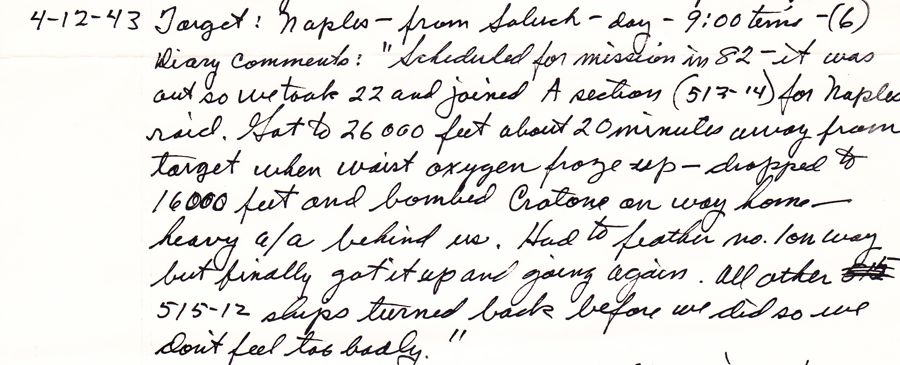 4-12-43 Target: Naples - from Soluch - day - 9:00 time - (6)
Diary comments: "Scheduled for mission in 82 - it was
out so we took 22 and joined A section (513-14) for Naples
raid. Got to 26000 feet about 20 minutes away from
target when waist oxygen froze up - dropped to
16000 feet and bombed Cratone on way home -
heavy a/a behind us. Had to feather no. 1 on way
but finally got it up and going again. All other
515-12 ships turned back before we did so we
don't feel too badly."